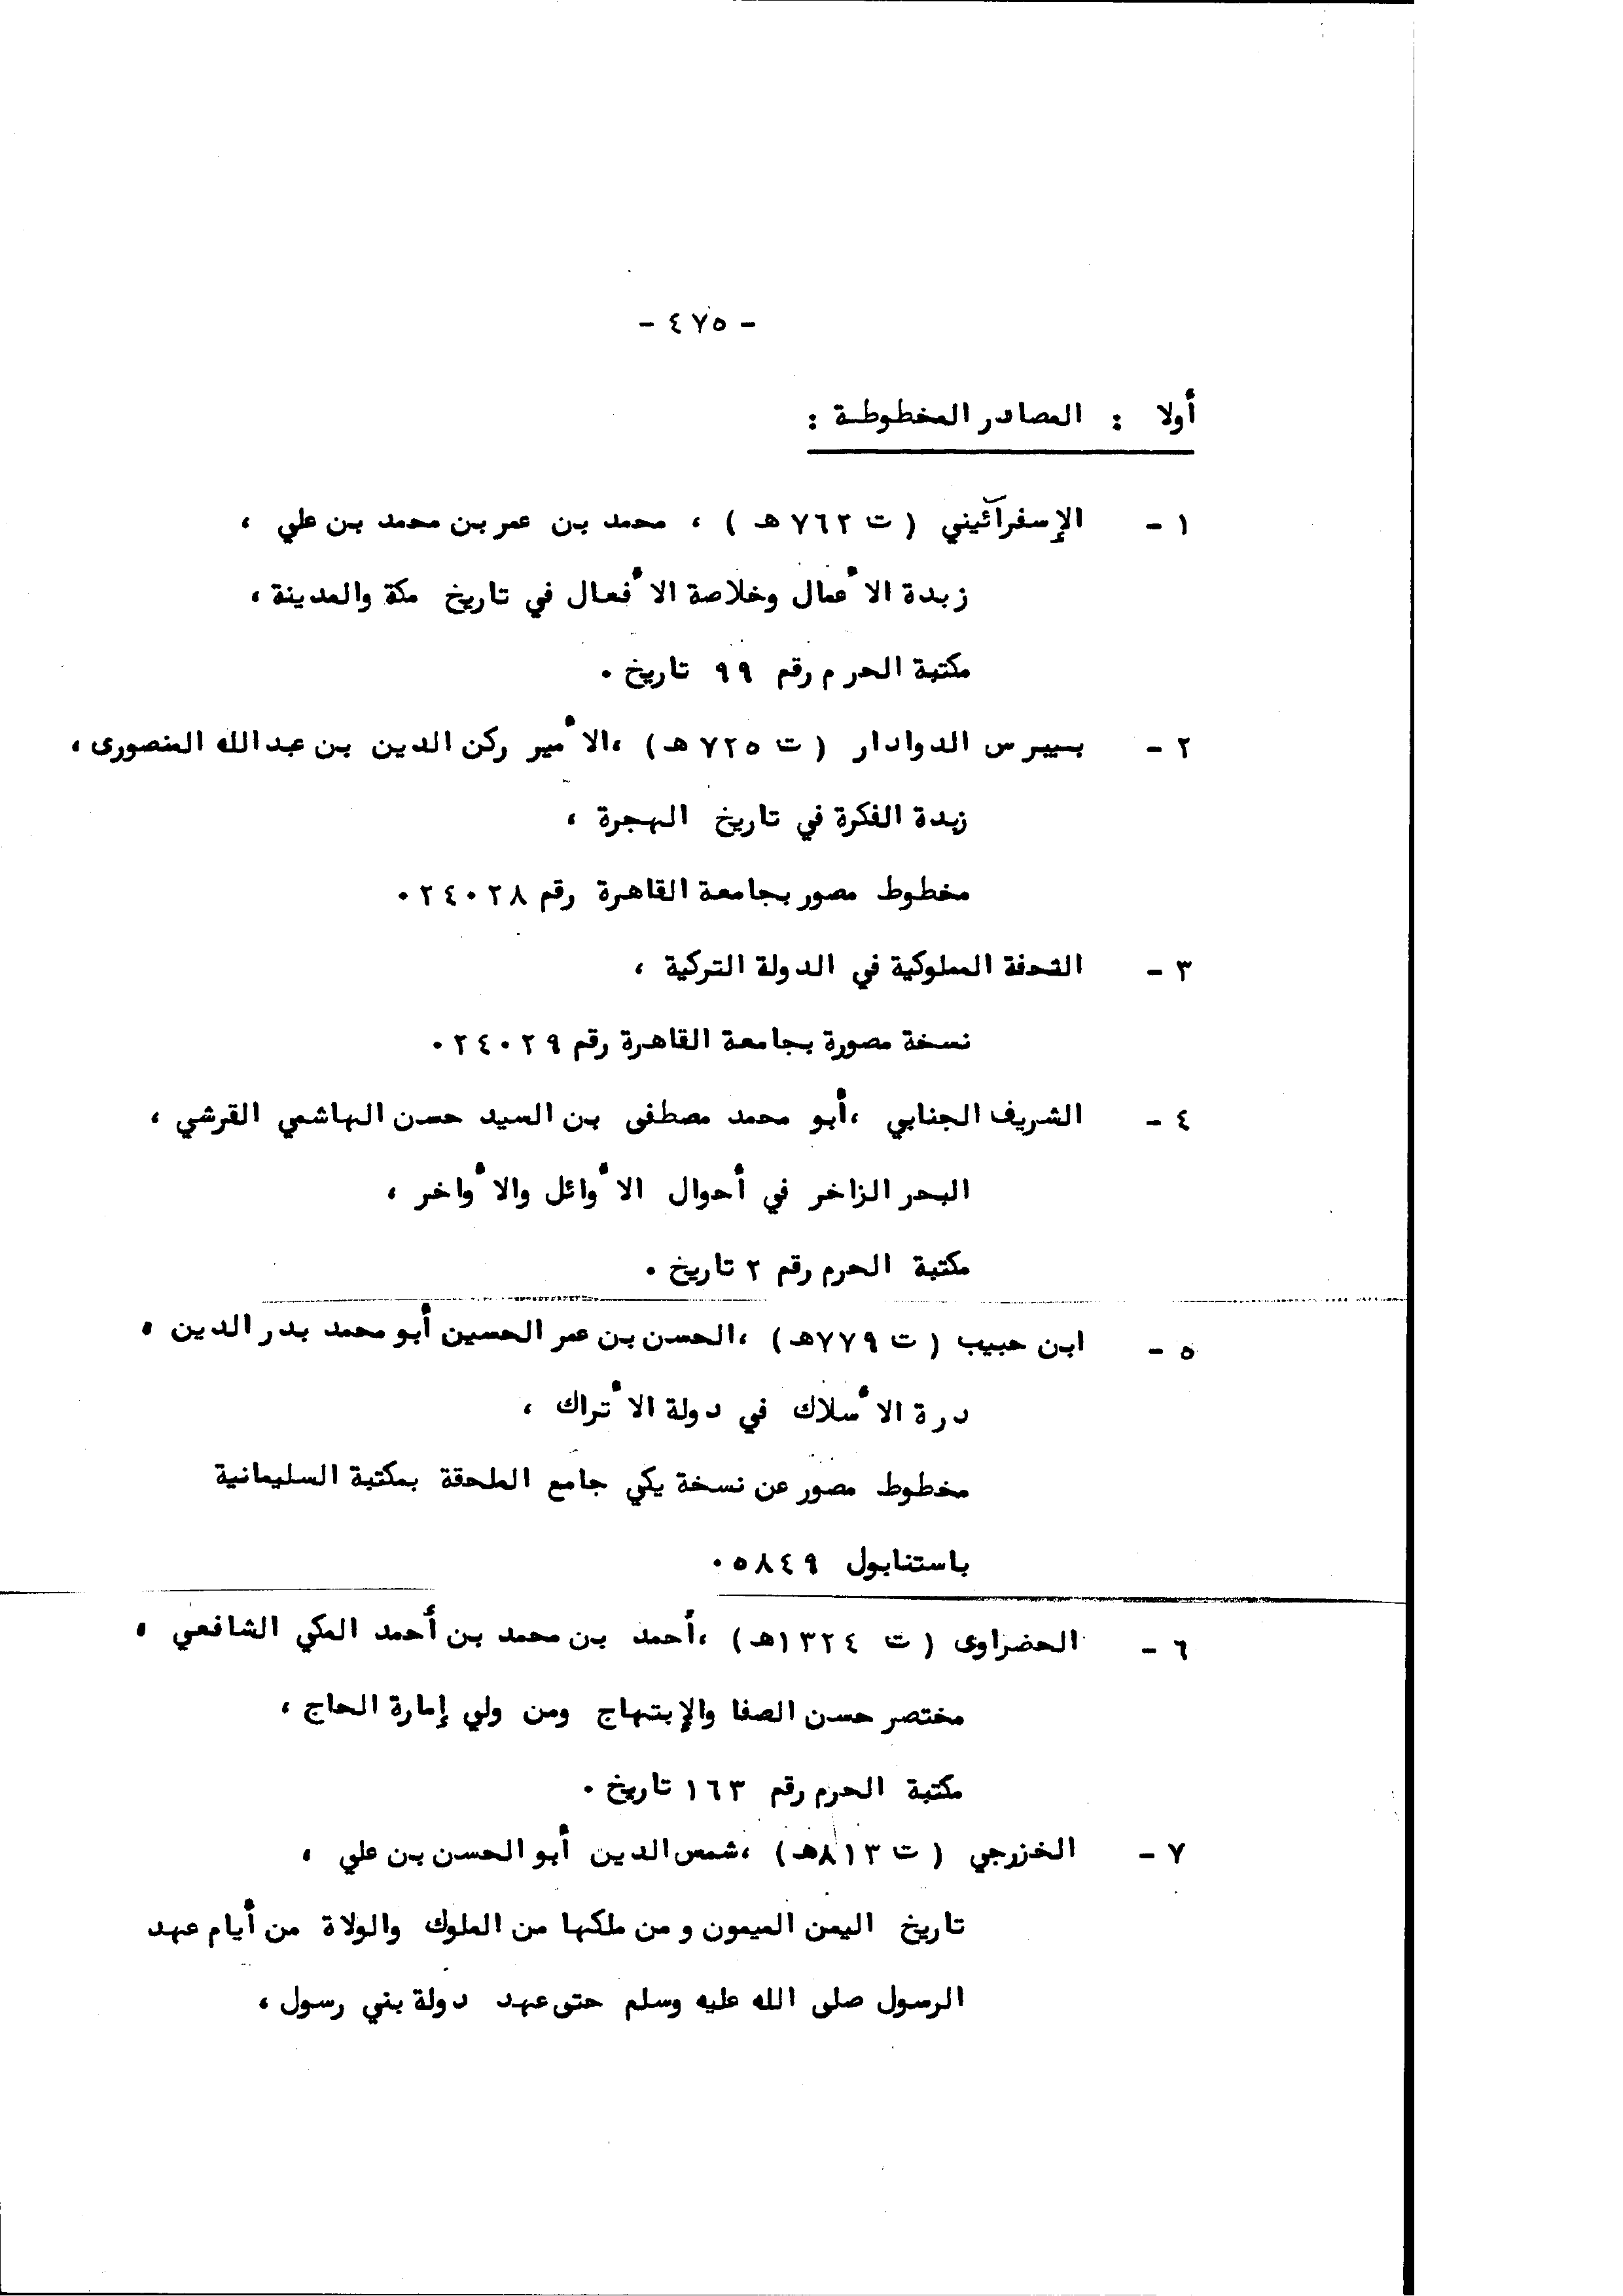 - ٤٧٥ -
أولا : المصادر المخطوطة :
١ - الإسفرآئيني ( ت ٧٦٢ هـ ) ، محمد بن عمر بن محمد بن علي ،
زبدة الأعمال وخلاصة الأفعال في تاريخ مكة والمدينة ،
مكتبة الحرم رقم ٩٩ تاريخ .
٢ - بيبرس الدوادار ( ت ٧٢٥ هـ ) ،الأمير ركن الدين بن عبدالله المنصورى ،
زبدة الفكرة في تاريخ الهجرة ،
مخطوط مصور بجامعة القاهرة رقم ٢٤٠٢٨ .
٣ - التحفة المملوكية في الدولة التركية ،
نسخة مصورة بجامعة القاهرة رقم ٢٤٠٢٩ .
٤ - الشريف الجنابي ،أبو محمد مصطفى بن السيد حسن الهاشمي القرشي ،
البحر الزاخر في أحوال الأوائل والأواخر ،
مكتبة الحرم رقم ٢ تاريخ .
٥ - ابن حبيب ( ت ٧٧٩هـ ) ،الحسن بن عمر الحسين أبو محمد بدر الدين ،
درة الأسلاك في دولة الأتراك ،
مخطوط مصور عن نسخة يكي جامع الملحقة بمكتبة السليمانية
باستنابول ٥٨٤٩ .
٦ - الحضراوى ( ت ١٣٢٤هـ ) ،أحمد بن محمد بن أحمد المكي الشافعي ،
مختصر حسن الصفا والإبتهاج ومن ولي إمارة الحاج ،
مكتبة الحرم رقم ١٦٣ تاريخ .
٧ - الخزرجي ( ت ٨١٣هـ ) ،شمس الدين أبو الحسن بن علي ،
تاريخ اليمن الميمون و من ملكها من الملوك والولاة من أيام عهد
الرسول صلى الله عليه وسلم حتى عهد دولة بني رسول ،